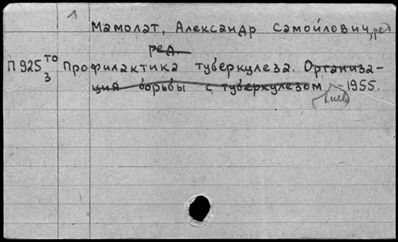 Мамолат, Александр Самойлович, ред
ред.
П925 то Профилактика туберкулеза. Организа-
3 ция борьбы с туберкулезом 1955.
(Киев)